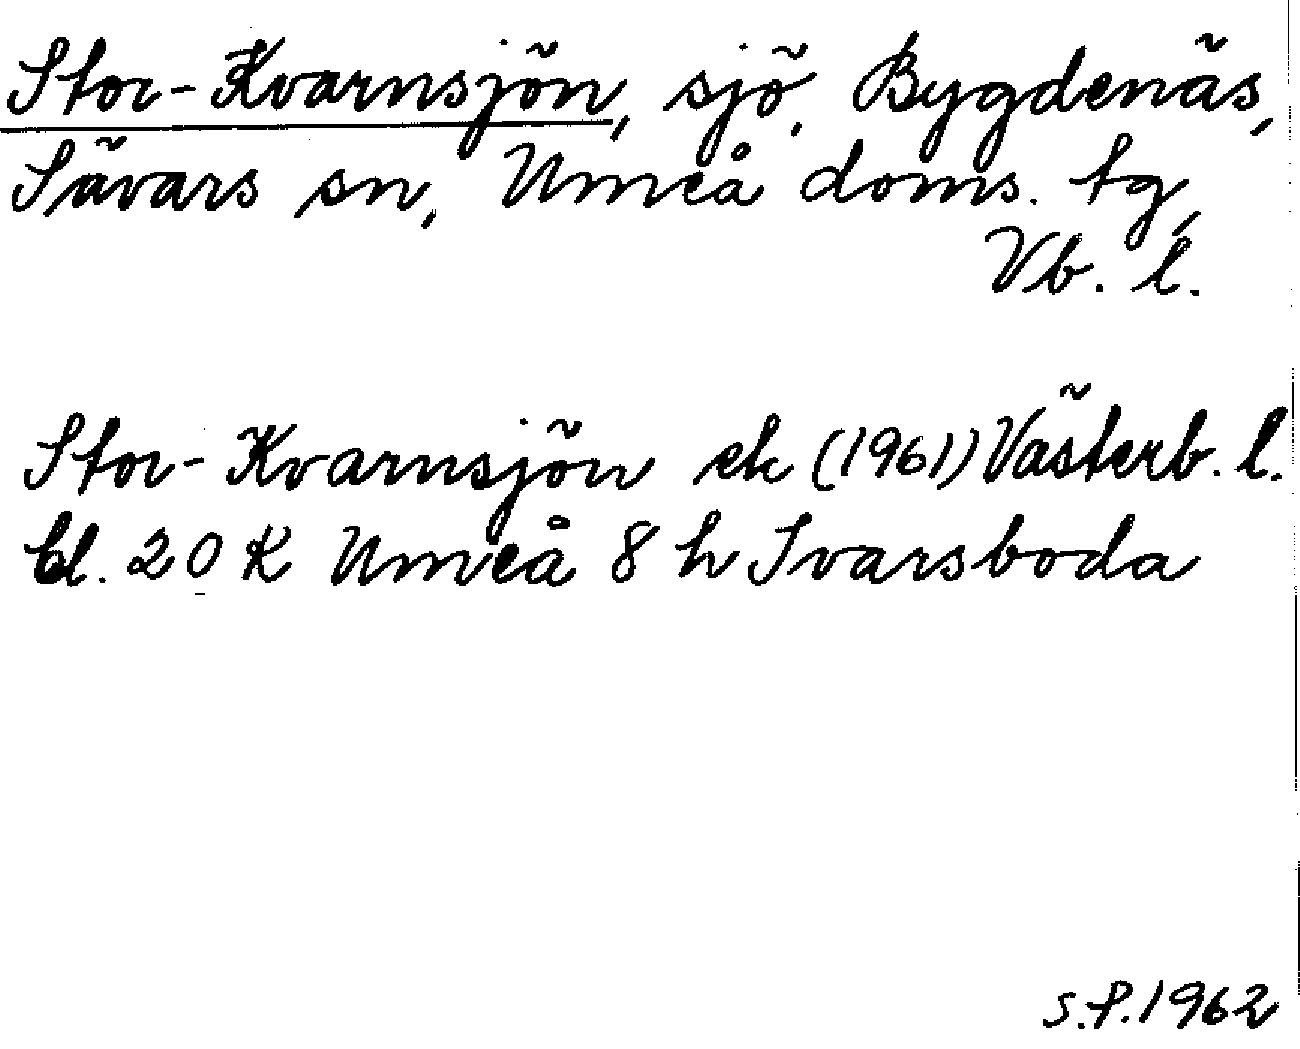 Stor-Kvarnsjön, sjö, Bygdenäs,
Sävars sn, Umeå doms. tg,
Vb. l.
Stor-Kvarnsjön ek (1961) Västerb. l.
bl. 20 K Umeå 8 h Ivarsboda
S.P. 1962